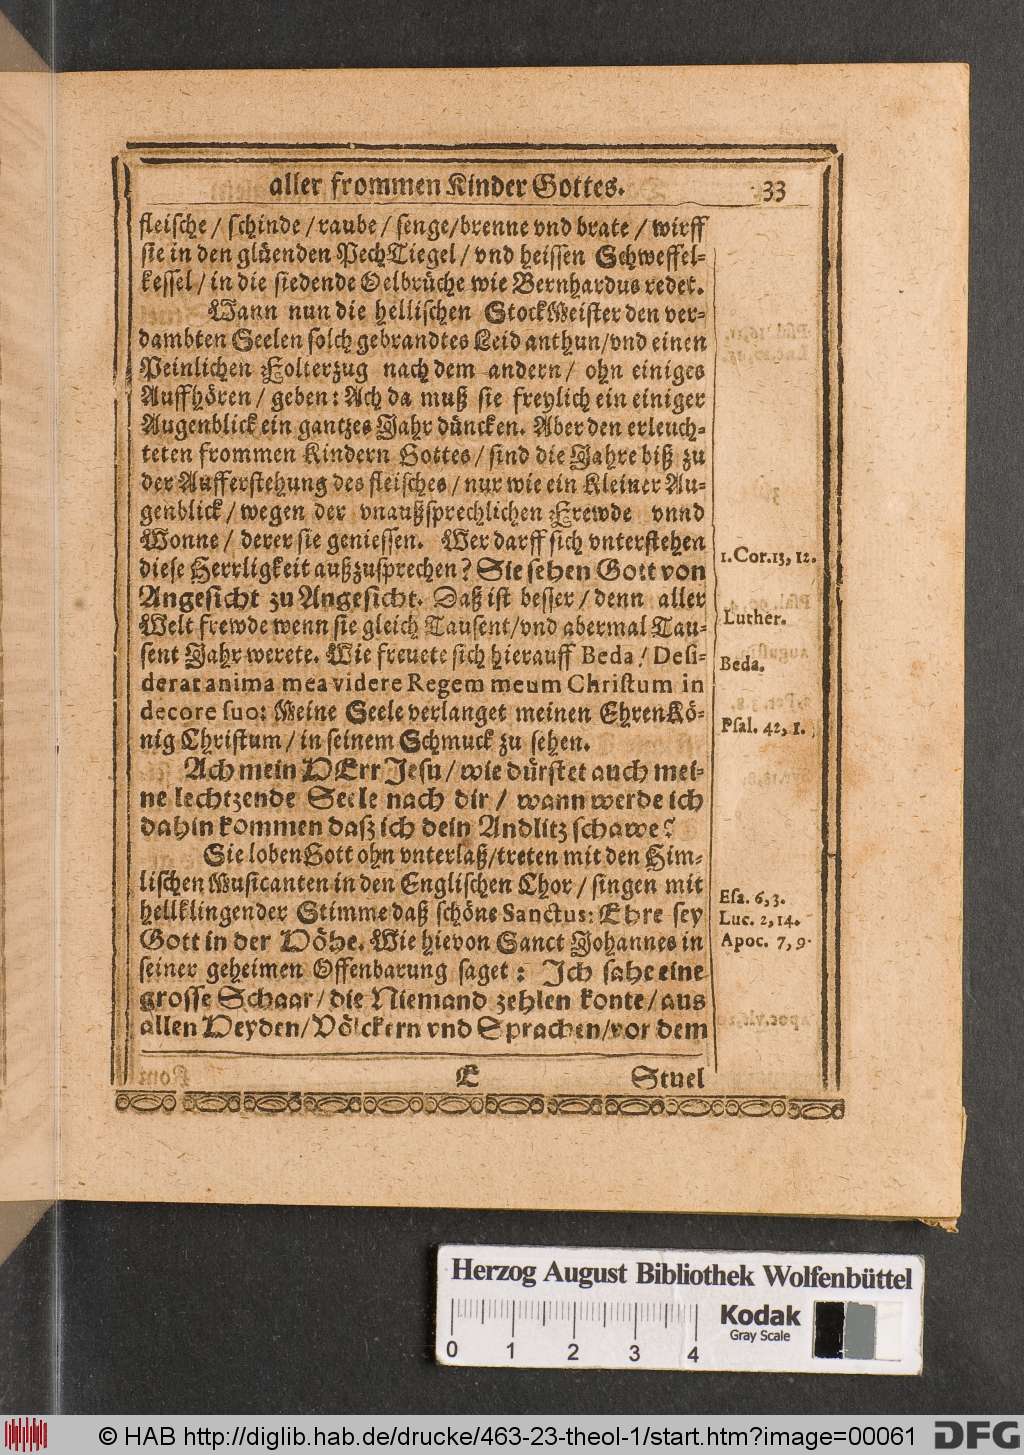 aller frommen Kinder Gottes. 33
fleische / schinde / raube / senge/brenne vnd brate / wirff
sie in den glüenden PechTiegel / vnd heissen Schweffel-
kessel / in die siedende Oelbrüche wie Bernhardus redet.
Wann nun die hellischen StockMeister den ver-
dambten Seelen solch gebrandtes Leid anthun/vnd einen
Peinlichen Folterzug nach dem andern / ohn einiges
Auffhören / geben: Ach da muß sie freylich ein einiger
Augenblick ein gantzes Jahr düncken. Aber den erleuch-
teten frommen Kindern Gottes / sind die Jahre biß zu
der Aufferstehung des fleisches / nur wie ein Kleiner Au-
genblick / wegen der vnaußsprechlichen Frewde vnnd
Wonne / derer sie geniessen. Wer darff sich vnterstehen
diese Herrligkeit außzusprechen? Sie sehen Gott von
1. Cor. 13, 12.
Angesicht zu Angesicht. Daß ist besser / denn aller
Welt frewde wenn sie gleich Tausent/vnd abermal Tau-
Luther.
sent Jahr werete. Wie freuete sich hierauff Beda / Desi-
Beda.
derat anima mea videre Regem meum Christum in
decore suo: Meine Seele verlanget meinen EhrenKö-
Psal. 42, 1.
nig Christum / in seinem Schmuck zu sehen.
Ach mein HErr Jesu / wie dürstet auch mei-
ne lechtzende Seele nach dir / wann werde ich
dahin kommen daß ich dein Andlitz schawe?
Sie loben Gott ohn vnterlaß/treten mit den Him-
lischen Musicanten in den Englischen Chor / singen mit
Esa. 6, 3.
hellklingender Stimme daß schöne Sanctus: Ehre sey
Luc. 2, 14.
Gott in der Höhe. Wie hievon Sanct Johannes in
Apoc. 7, 9.
seiner geheimen Offenbarung saget: Ich sahe eine
grosse Schaar / die Niemand zehlen konte / aus
allen Heyden/Völckern vnd Sprachen/vor dem
E Stuel
Herzog August Bibliothek Wolfenbüttel
0 1 2 3 4
Kodak
Gray Scale
© HAB http://diglib.hab.de/drucke/463-23-theol-1/start.htm?image=00061
DFG